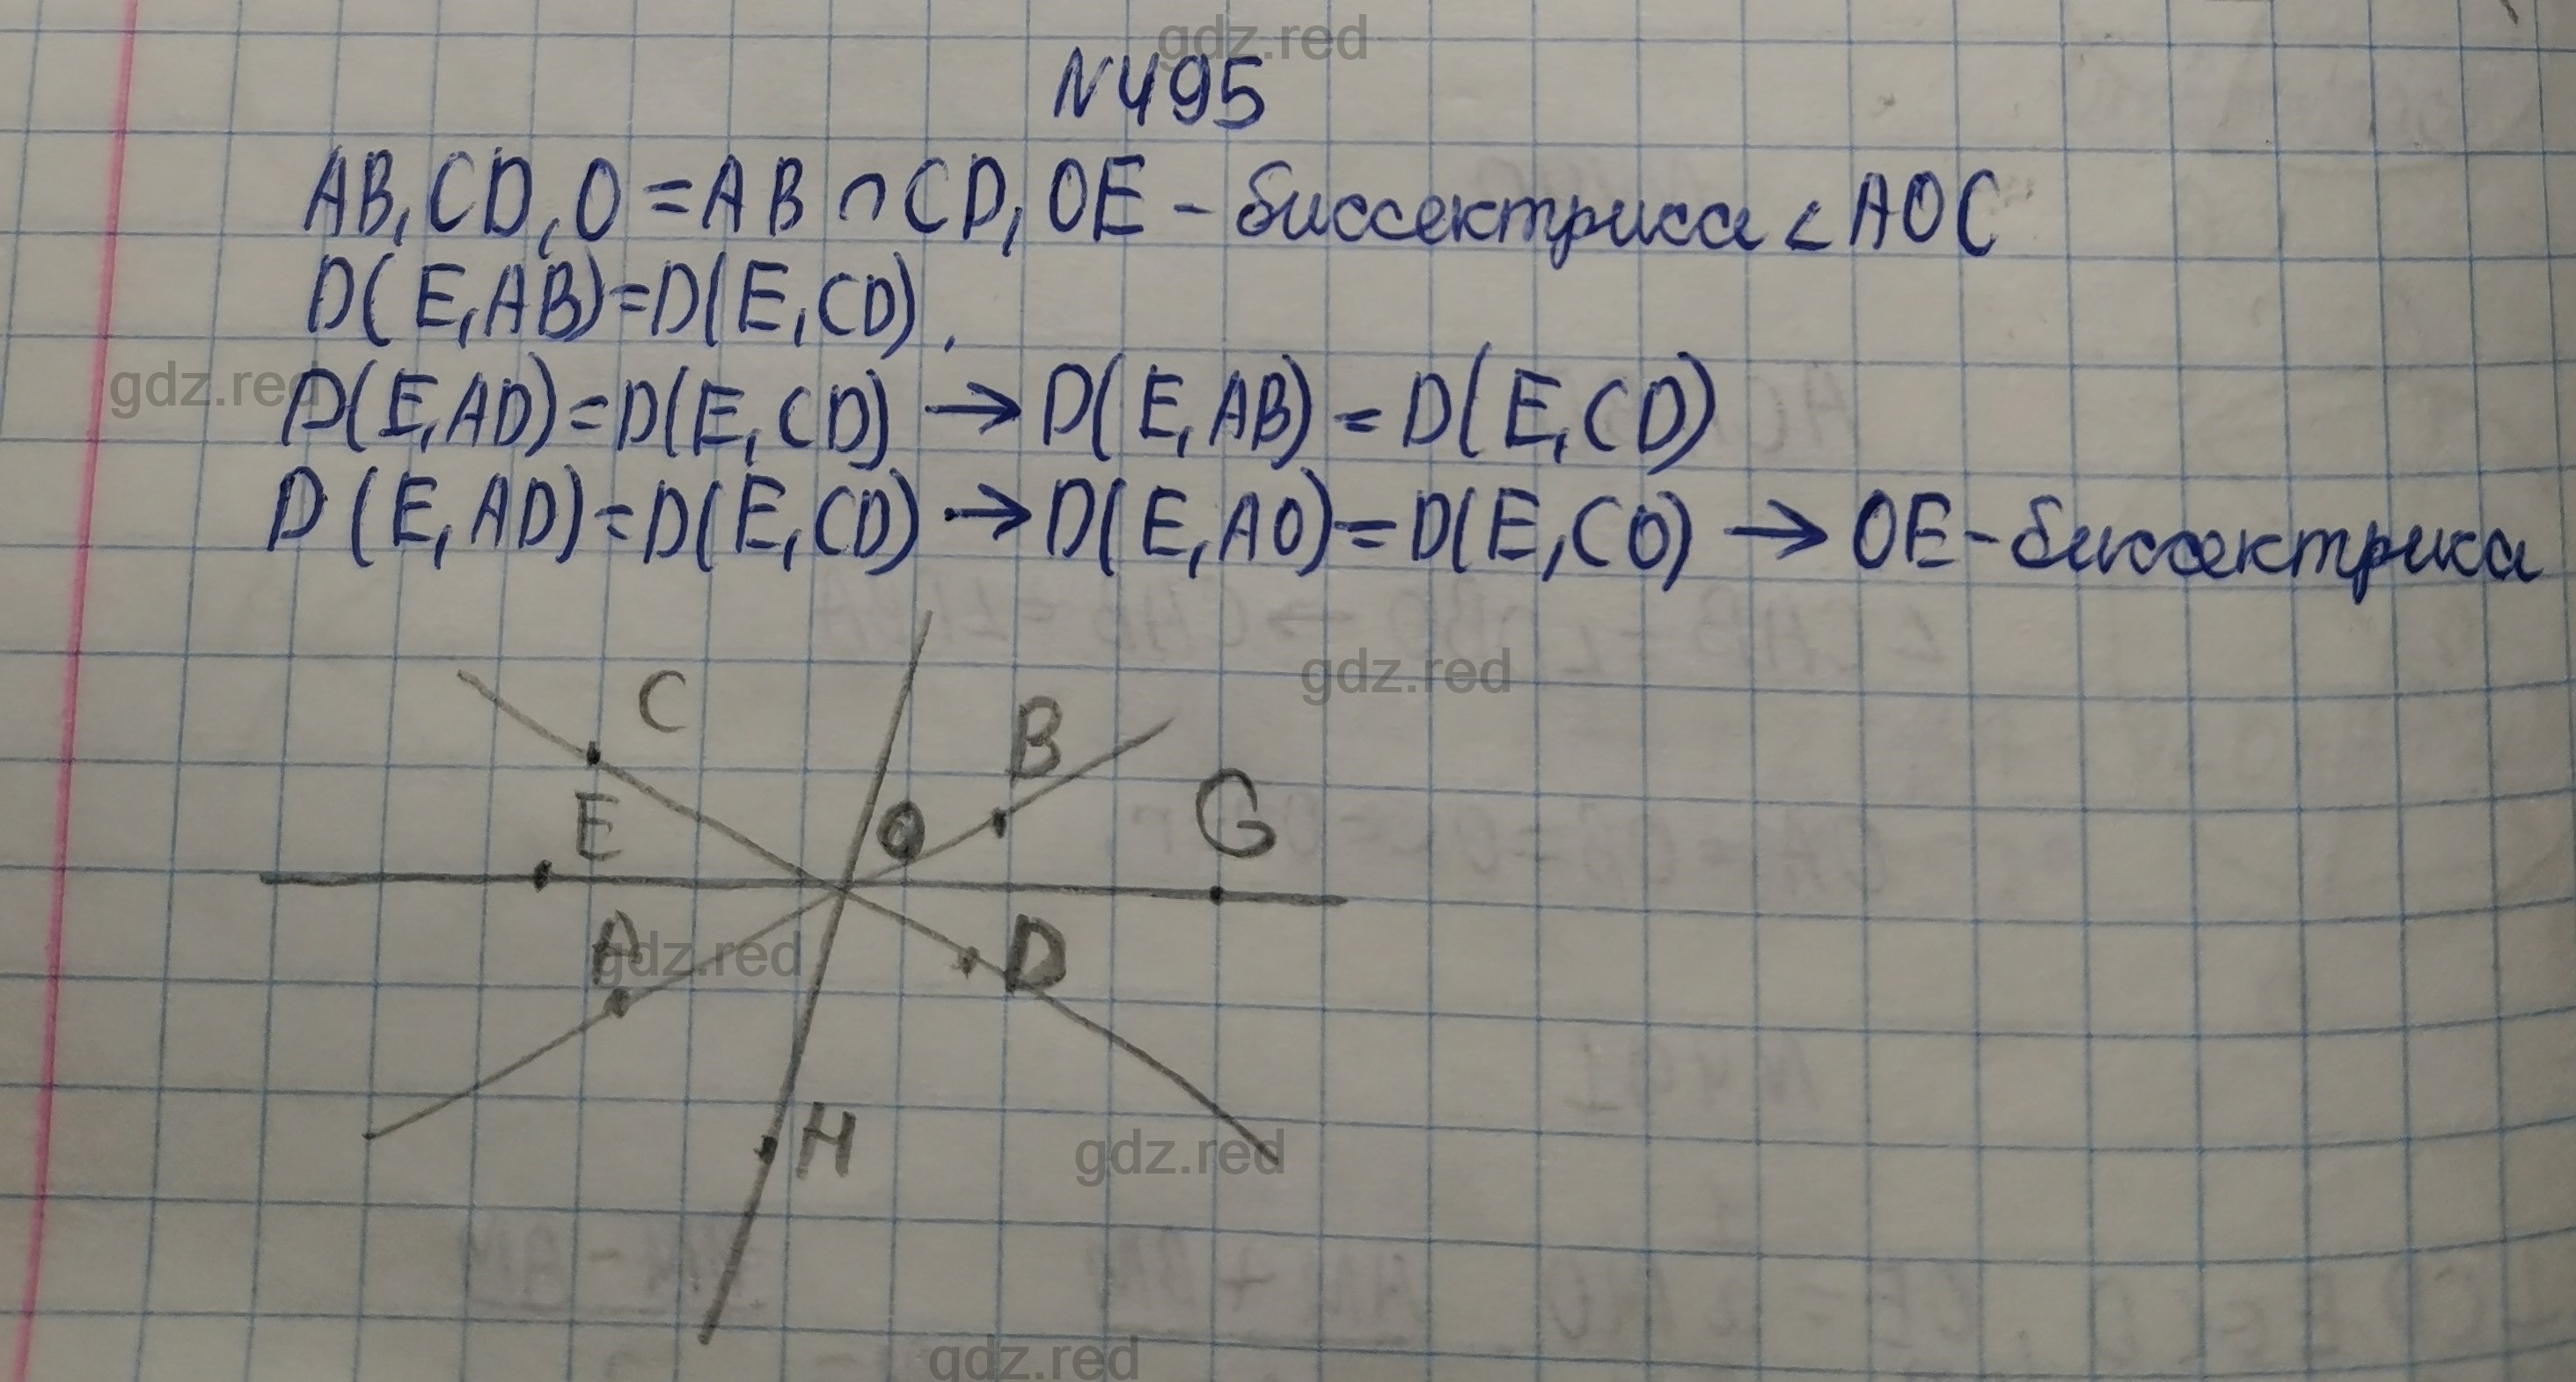 gdz.red
N495
AB, CD, O = AB ∩ CD, OE - биссектриса < AOC
D(E, AB) = D(E, CD).
gdz.red
D(E, AD) = D(E, CD) → D(E, AB) = D(E, CD)
D(E, AD) = D(E, CD) → D(E, AO) = D(E, CO) → OE - биссектриса
gdz.red
C
B
G
E
O
A
gdz.red
D
H
gdz.red
gdz.red